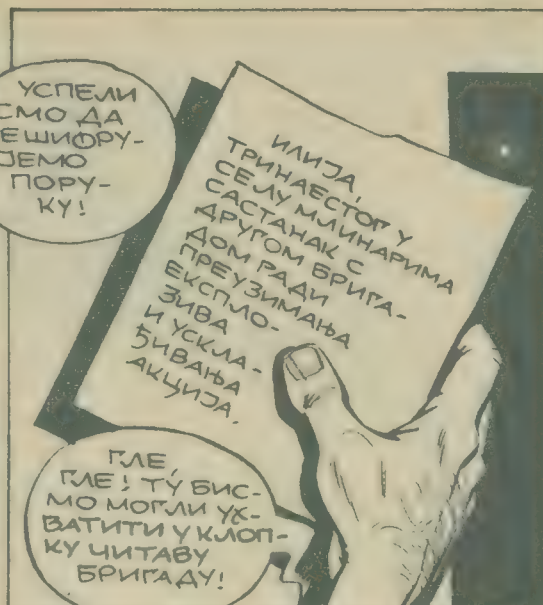 УСПЕЛИ
СМО ДА
ЕШИФРУ-
ЈЕМО
ПОРУ-
КУ!
ИЛИЈА,
ТРИНАЕСТОГ У
СЕЛУ МЛИНАРИМА
САСТАНАК С
ДРУГОМ БРИГА-
ДОМ РАДИ
ПРЕУЗИМАЊА
ЕКСПЛО-
ЗИВА
И УСКЛА-
ЂИВАЊА
АКЦИЈА.
ГЛЕ,
ГЛЕ! ТУ БИС-
МО МОГЛИ УХ-
ВАТИТИ У КЛОП-
КУ ЧИТАВУ
БРИГАДУ!